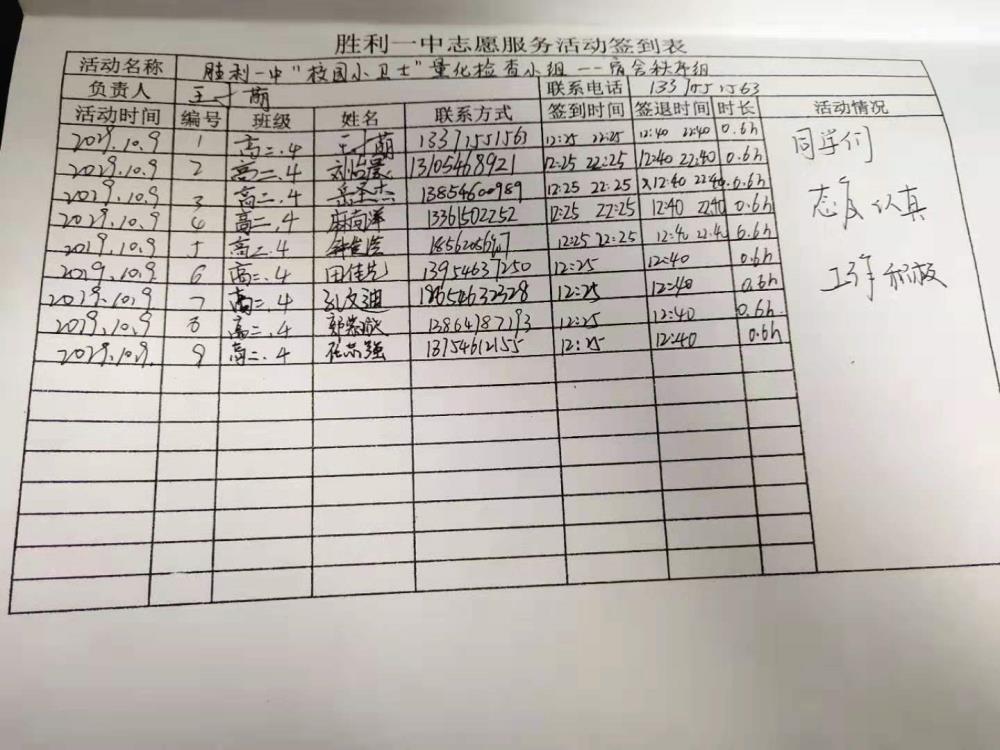 胜利一中志愿服务活动签到表
活动名称 胜利一中"校园小卫士"量化检查小组——宿舍秩序组
负责人 王 萌 联系电话 133 1551563
活动时间 编号 班级 姓名 联系方式 签到时间 签退时间 时长 活动情况
2019.10.9 1 高二.4 萌 12:25 22:25 12:40 22:40 0.6h
2019.10.9 2 高二.4 刘 13105468921 12:25 22:25 12:40 22:40 0.6h
2019.10.9 3 高二.4 岳圣杰 13854600989 12:25 22:25 12:40 22:40 0.6h
2019.10.9 4 高二.4 麻向洋 13361502252 12:25 22:25 12:40 22:40 0.6h
2019.10.9 5 高二.4 12:25 22:25 12:40 22:40 0.6h
2019.10.9 6 高二.4 田佳 13954637250 12:25 12:40 0.6h
2019.10.9 7 高二.4 孔文迪 18654632328 12:25 12:40 0.6h
2019.10.9 8 高二.4 12:25 12:40 0.6h
2019.10.9 9 高二.4 强 12:25 12:40 0.6h
同学们
态度认真
工作积极